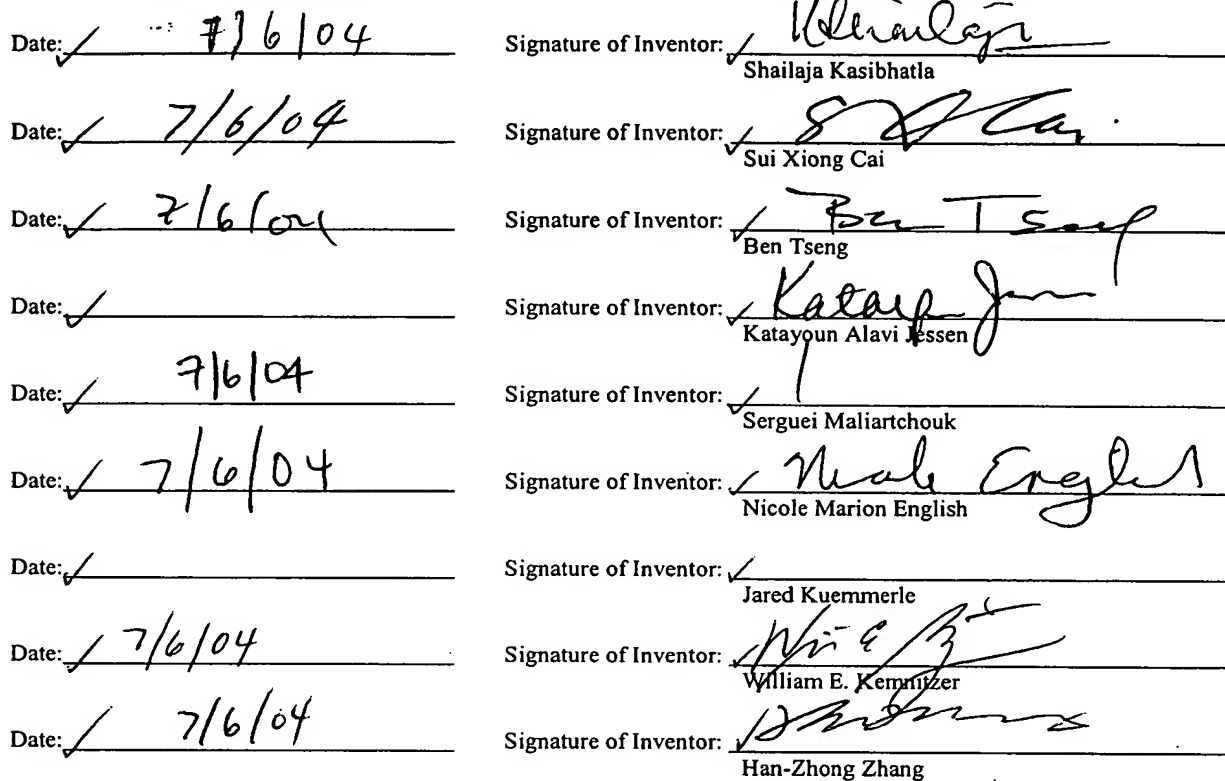 Date: ✓ 7/6/04 Signature of Inventor: ✓
Shailaja Kasibhatla
Date: ✓ 7/6/04 Signature of Inventor: ✓ S Cai
Sui Xiong Cai
Date: ✓ 7/6/04 Signature of Inventor: ✓ Ben Tseng
Ben Tseng
Date: ✓ Signature of Inventor: ✓
Katayoun Alavi Jessen
Date: ✓ 7/6/04 Signature of Inventor: ✓
Serguei Maliartchouk
Date: ✓ 7/6/04 Signature of Inventor: ✓ Nicole English
Nicole Marion English
Date: ✓ Signature of Inventor: ✓
Jared Kuemmerle
Date: ✓ 7/6/04 Signature of Inventor: ✓
William E. Kemnitzer
Date: ✓ 7/6/04 Signature of Inventor: ✓
Han-Zhong Zhang